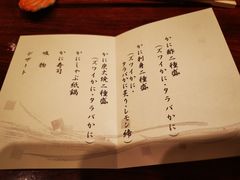 かに酢二種盛
（ズワイかに・タラバかに）
かに刺身二種盛
（ズワイかに・
タラバかに炙りレモン締）
かに炭火焼二種盛
（ズワイかに・タラバかに）
かにしゃぶ紙鍋
かに寿司
吸物
デザート